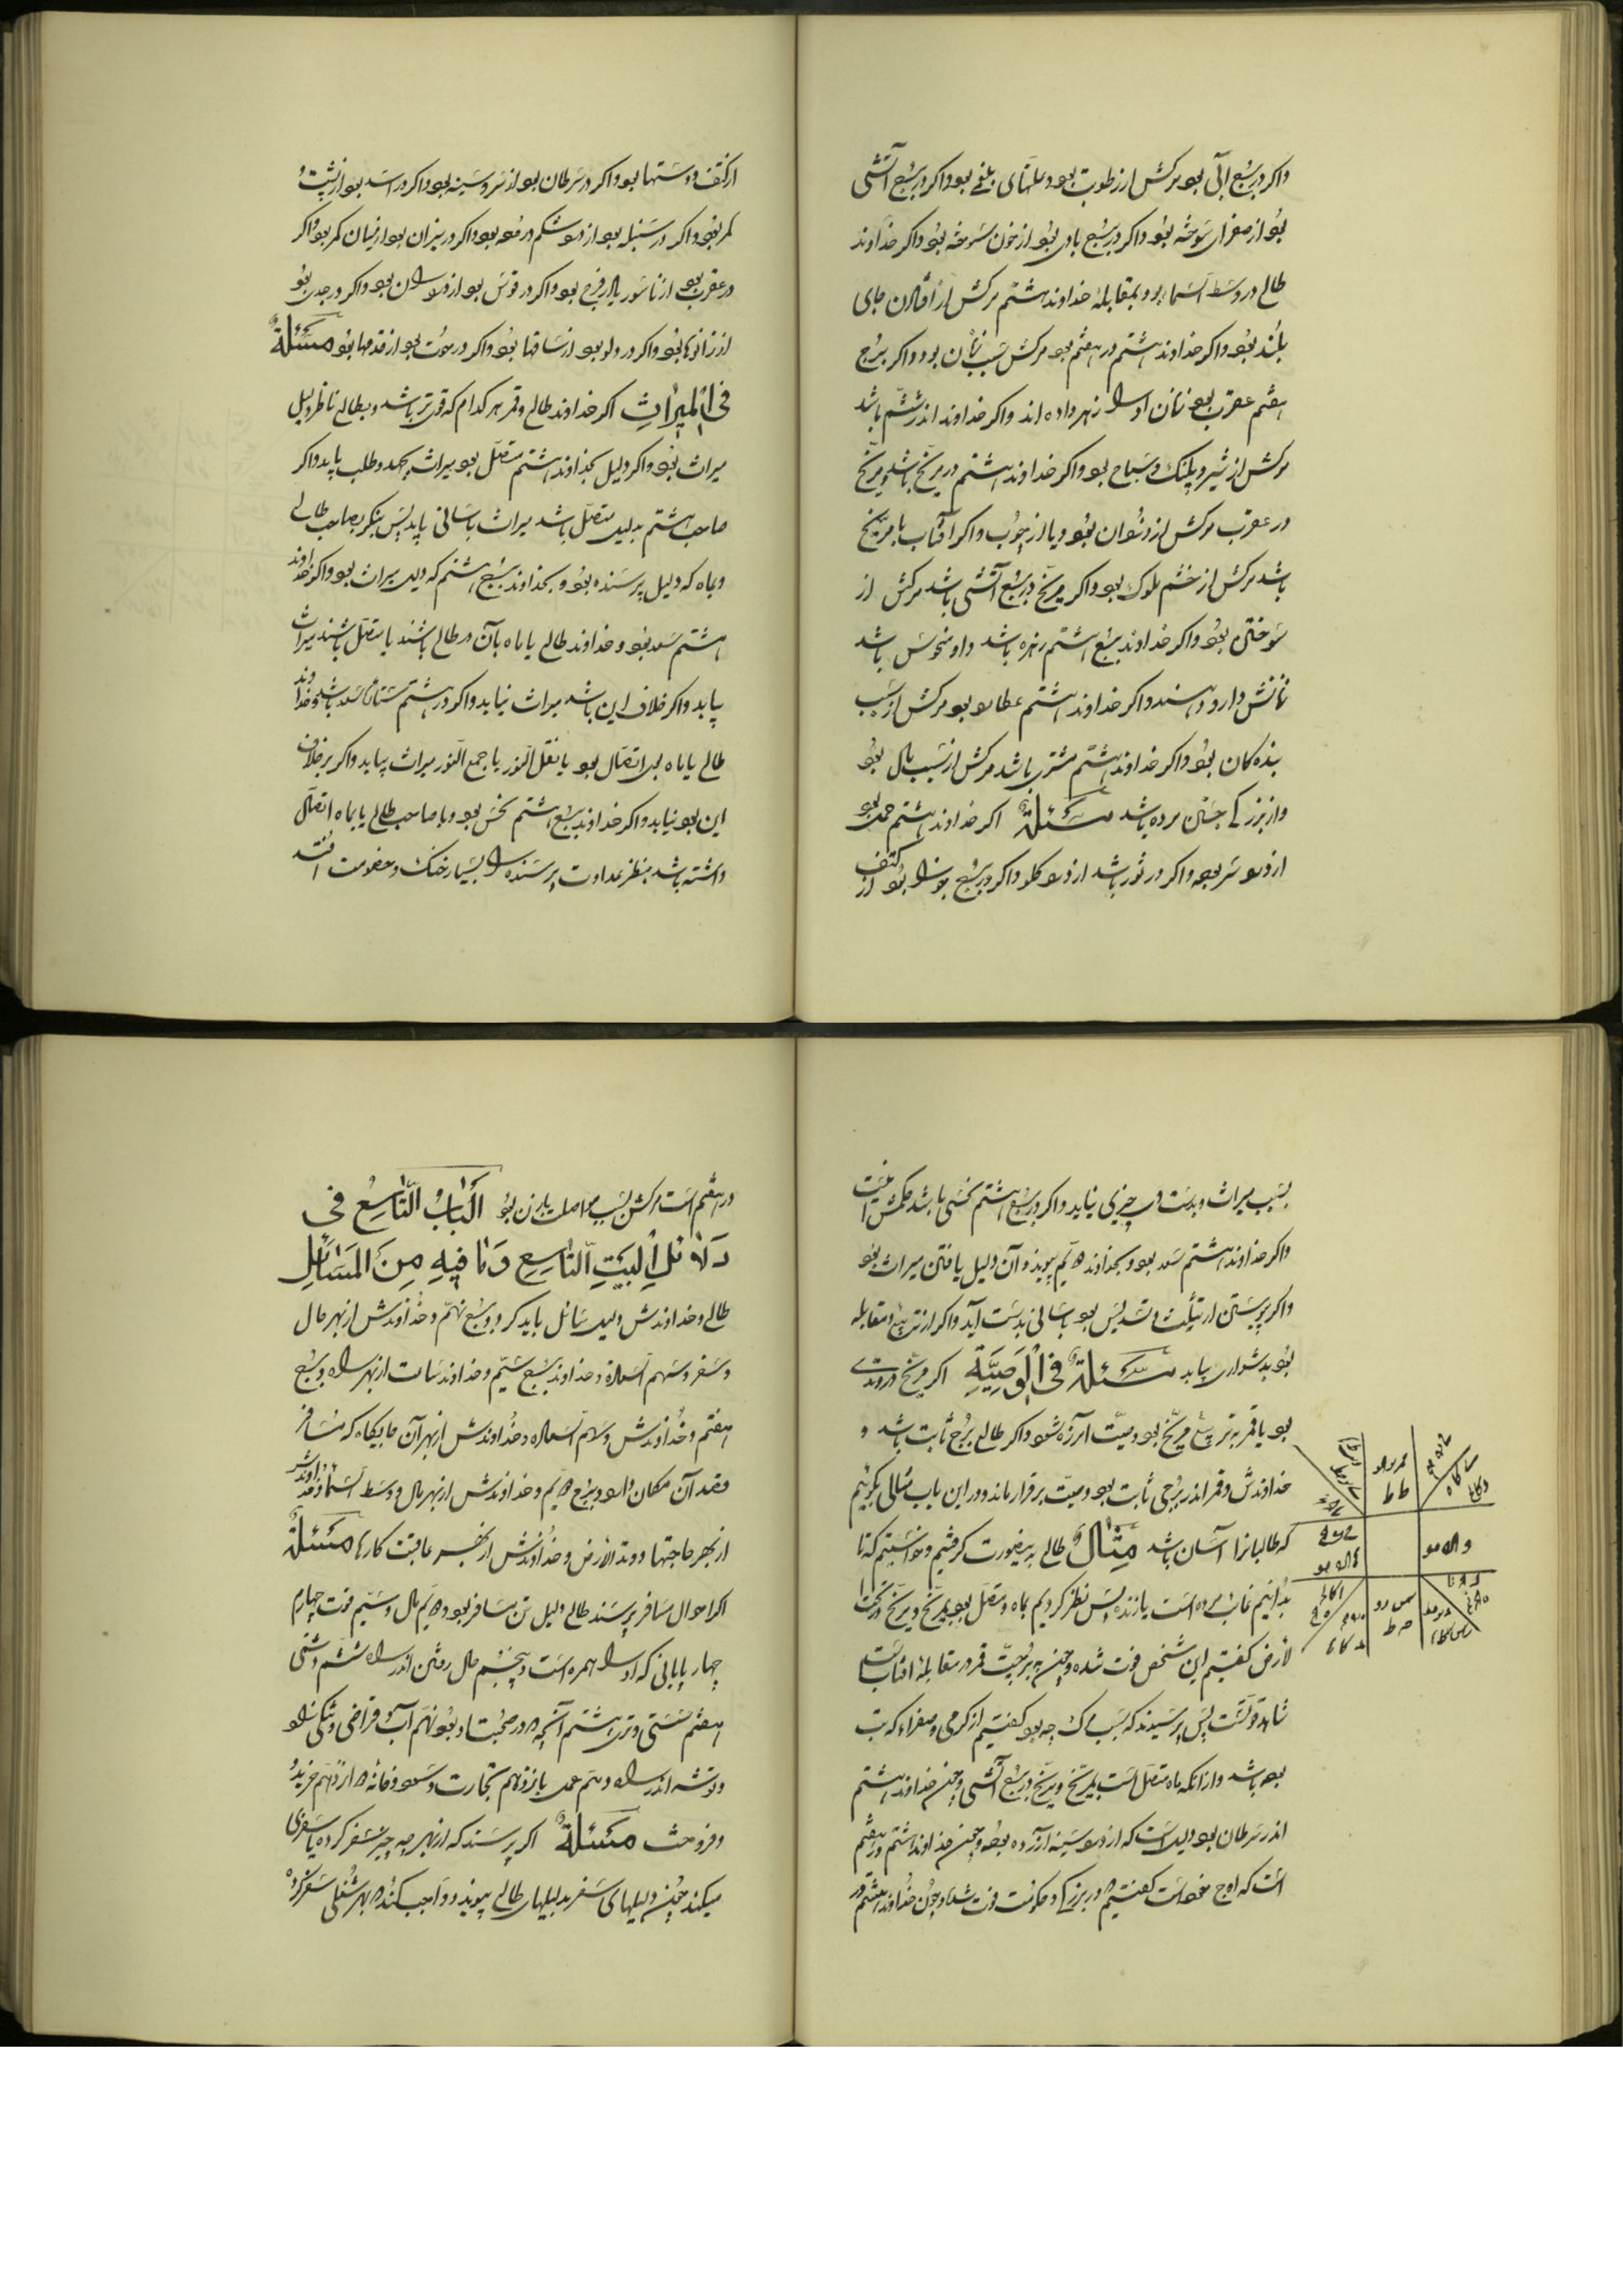 واکر در برج آبی بود مرکش از رطوبت بود و علتهای بلغمی بود واکر در برج آتشی
بود از صفرای سوخته بود واکر در برج بادی بود از خون سوخته بود واکر خداوند
طالع در وسط السما بود و بمقابله خداوند هشتم مرکش از افتادن جای
بلند بود واکر خداوند هشتم در هفتم بود مرکش بسبب زنان بود واکر برج
هفتم عقرب بود زنان او را زهر داده اند واکر خداوند اندر ششم باشد
مرکش از شیر و پلنک و سباع بود واکر خداوند هشتم در مریخ باشد و مریخ
در عقرب مرکش از دزدان بود و یا از چوب واکر آفتاب با مریخ
باشد مرکش از خشم ملوک بود واکر مریخ در برج آتشی باشد مرکش از
سوختن بود واکر خداوند برج هشتم زهره باشد و او منحوس باشد
زنانش دارو دهند واکر خداوند هشتم عطارد بود مرکش از سبب
بنده کان بود واکر خداوند هشتم مشتری باشد مرکش از سبب مال بود
و از بزرکی جستن مرده باشد مسئلة اکر خداوند هشتم حمل بود
از درد سر بود واکر در ثور باشد از درد کلو واکر در برج جوزا بود از کتف
از کتف و دستها بود واکر در سرطان بود از سر و سینه بود واکر در اسد بود از پشت و
کمر بود واکر در سنبله بود از درد شکم و رموده بود واکر در میزان بود از میان کمر بود واکر
در عقرب بود از ناسور یا از فرج بود واکر در قوس بود از درد ران بود واکر در جدی بود
از زانوها بود واکر در دلو بود از ساقها بود واکر در حوت بود از قدمها بود مسئلة
فی المیراث اکر خداوند طالع و قمر هر کدام که قوی تر باشد و بطالع ناظر دلیل
میراث بود واکر دلیل بخداوند هشتم متصل بود میراث بجهد و طلب یابد واکر
صاحب هشتم بدلیل متصل باشد میراث باسانی یابد پس بنکر بصاحب طالع
و بماه که دلیل پرسنده بود و بخداوند برج هشتم که دلیل میراث بود واکر خداوند
هشتم سعد بود و خداوند طالع یا ماه بآن در طالع باشند یا متصل باشند میراث
بیابد واکر خلاف این باشد میراث نیابد واکر در هشتم ستاره سعد باشد و خداوند
طالع یا ماه بی اتصال بود یا نقل النور یا جمع النور میراث بیابد واکر بر خلاف
این بود نیابد واکر خداوند برج هشتم نحس بود و با صاحب طالع یا بماه اتصال
داشته باشد بنظر عداوت پرسنده را بسیار جنک و خصومت افتد
بسبب میراث و بدست وی چیزی نیاید واکر در برج هشتم نحسی باشد حکمش اینست
واکر خداوند هشتم سعد بود و بخداوند دویم پیوندد آن دلیل یافتن میراث بود
واکر پیوستن از تثلیث و تسدیس بود باسانی بدست آید واکر از تربیع و مقابله
بود بدشواری بیابد مسئلة فی الوصیة اکر مریخ در وتدی
بود یا قمر بتربیع مریخ بود وصیت آن رد شود واکر طالع برج ثابت باشد و
خداوندش و قمر اندر برجی ثابت بود وصیت برقرار ماند و در این باب مثالی بکوئیم
که طالبانرا آسان باشد مثال طالع بدینصورت کرفتیم و خواستیم که تا
بدانیم غایب مرده است یا زنده پس نظر کردیم ماه متصل بود بمریخ و مریخ در تحت
الارض کفتیم این شخص فوت شده و چنین بر برجیت قمر در مقابله افتابست
شاهد قولست پس پرسیدند که بسبب مرک چه بود کفتیم از کرمی و صفراء که تب
بود باشد و از آنکه ماه متصل است بمریخ و مریخ در برج آتشی و چنین خداوند هشتم
اندر سرطان بود دلیل است که از درد سینه آزرده بود و چنین خداوند هشتم در هفتم
است که اوج خود است کفتیم در بزرکی و حکومت فوت شد و چون خداوند هشتم در
در هفتم است مرکش بسبب مواصلت با زن بود الباب التاسع فی
دلائل البیت التاسع و ما فیه من المسائل
طالع و خداوندش دلیل سائل باید کرد و برج نهم و خداوندش از بهر حال
و سفر و سهم السعادة و خداوند برج سیم و خداوند ساعت از بهر راه و برج
هفتم و خداوندش و سهم السعاده و خداوندش از بهر آن جایکاه که مسافر
قصد آن مکان دارد و برج دویم و خداوندش از بهر مال و وسط السما و خداوندش
از بهر حاجتها و وتد الارض و خداوندش از بهر عاقبت کارها مسئلة
اکر احوال مسافر پرسند طالع دلیل تن مسافر بود و دویم مال و سیم قوت چهارم
چهار پایانی که او را همره است و پنجم حال رفتن اندر راه ششم و شتی
هفتم سستی و تری هشتم آنچه در صحبت او بود نهم آب و فراخی و تنکی زاد
و توشه اندر راه دهم عمل یازدهم تجارت و سود و خانه دوازدهم خرید
و فروخت مسئلة اکر پرسند که از بهر چه چیز سفر کرده یا سفری
میکند چنین دلیلهای سفر بدلیلهای طالع پیوندد واجب کند که بهر شغلی سفر کرده